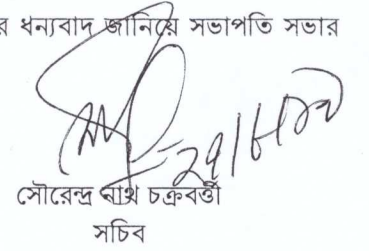 র ধন্যবাদ জানিয়ে সভাপতি সভার
সৌরেন্দ্র নাথ চক্রবর্ত্তী
সচিব